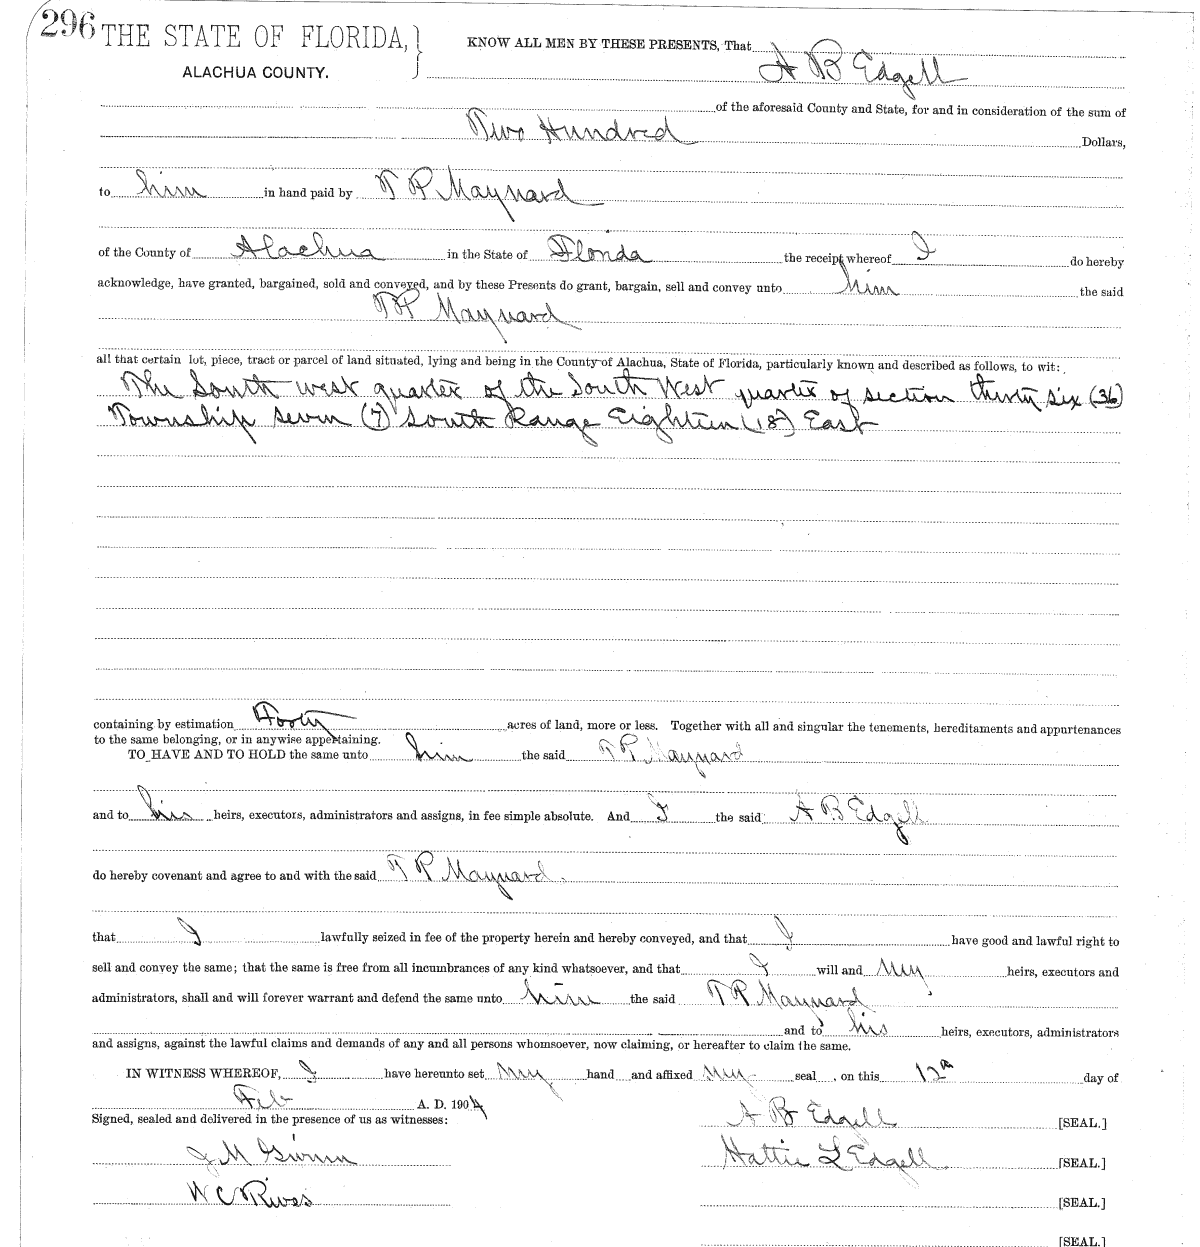 296 THE STATE OF FLORIDA,
ALACHUA COUNTY.
KNOW ALL MEN BY THESE PRESENTS, That
A B Edgell
of the aforesaid County and State, for and in consideration of the sum of
Two Hundred Dollars,
to him in hand paid by T P Maynard
of the County of Alachua in the State of Florida the receipt whereof I do hereby
acknowledge, have granted, bargained, sold and conveyed, and by these Presents do grant, bargain, sell and convey unto him the said
T P Maynard
all that certain lot, piece, tract or parcel of land situated, lying and being in the County of Alachua, State of Florida, particularly known and described as follows, to wit:
The South west quarter of the South West quarter of section thirty six (36)
Township seven (7) South Range Eighteen (18) East
containing by estimation Forty acres of land, more or less. Together with all and singular the tenements, hereditaments and appurtenances
to the same belonging, or in anywise appertaining.
TO HAVE AND TO HOLD the same unto him the said T P Maynard
and to his heirs, executors, administrators and assigns, in fee simple absolute. And I the said A B Edgell
do hereby covenant and agree to and with the said T P Maynard.
that I lawfully seized in fee of the property herein and hereby conveyed, and that I have good and lawful right to
sell and convey the same; that the same is free from all incumbrances of any kind whatsoever, and that I will and my heirs, executors and
administrators, shall and will forever warrant and defend the same unto him the said T P Maynard
and to his heirs, executors, administrators
and assigns, against the lawful claims and demands of any and all persons whomsoever, now claiming, or hereafter to claim the same.
IN WITNESS WHEREOF, I have hereunto set my hand and affixed my seal, on this 12th day of
Feb A. D. 1904
Signed, sealed and delivered in the presence of us as witnesses:
A B Edgell [SEAL.]
J M Hattie L Edgell [SEAL.]
W C Rives [SEAL.]
[SEAL.]